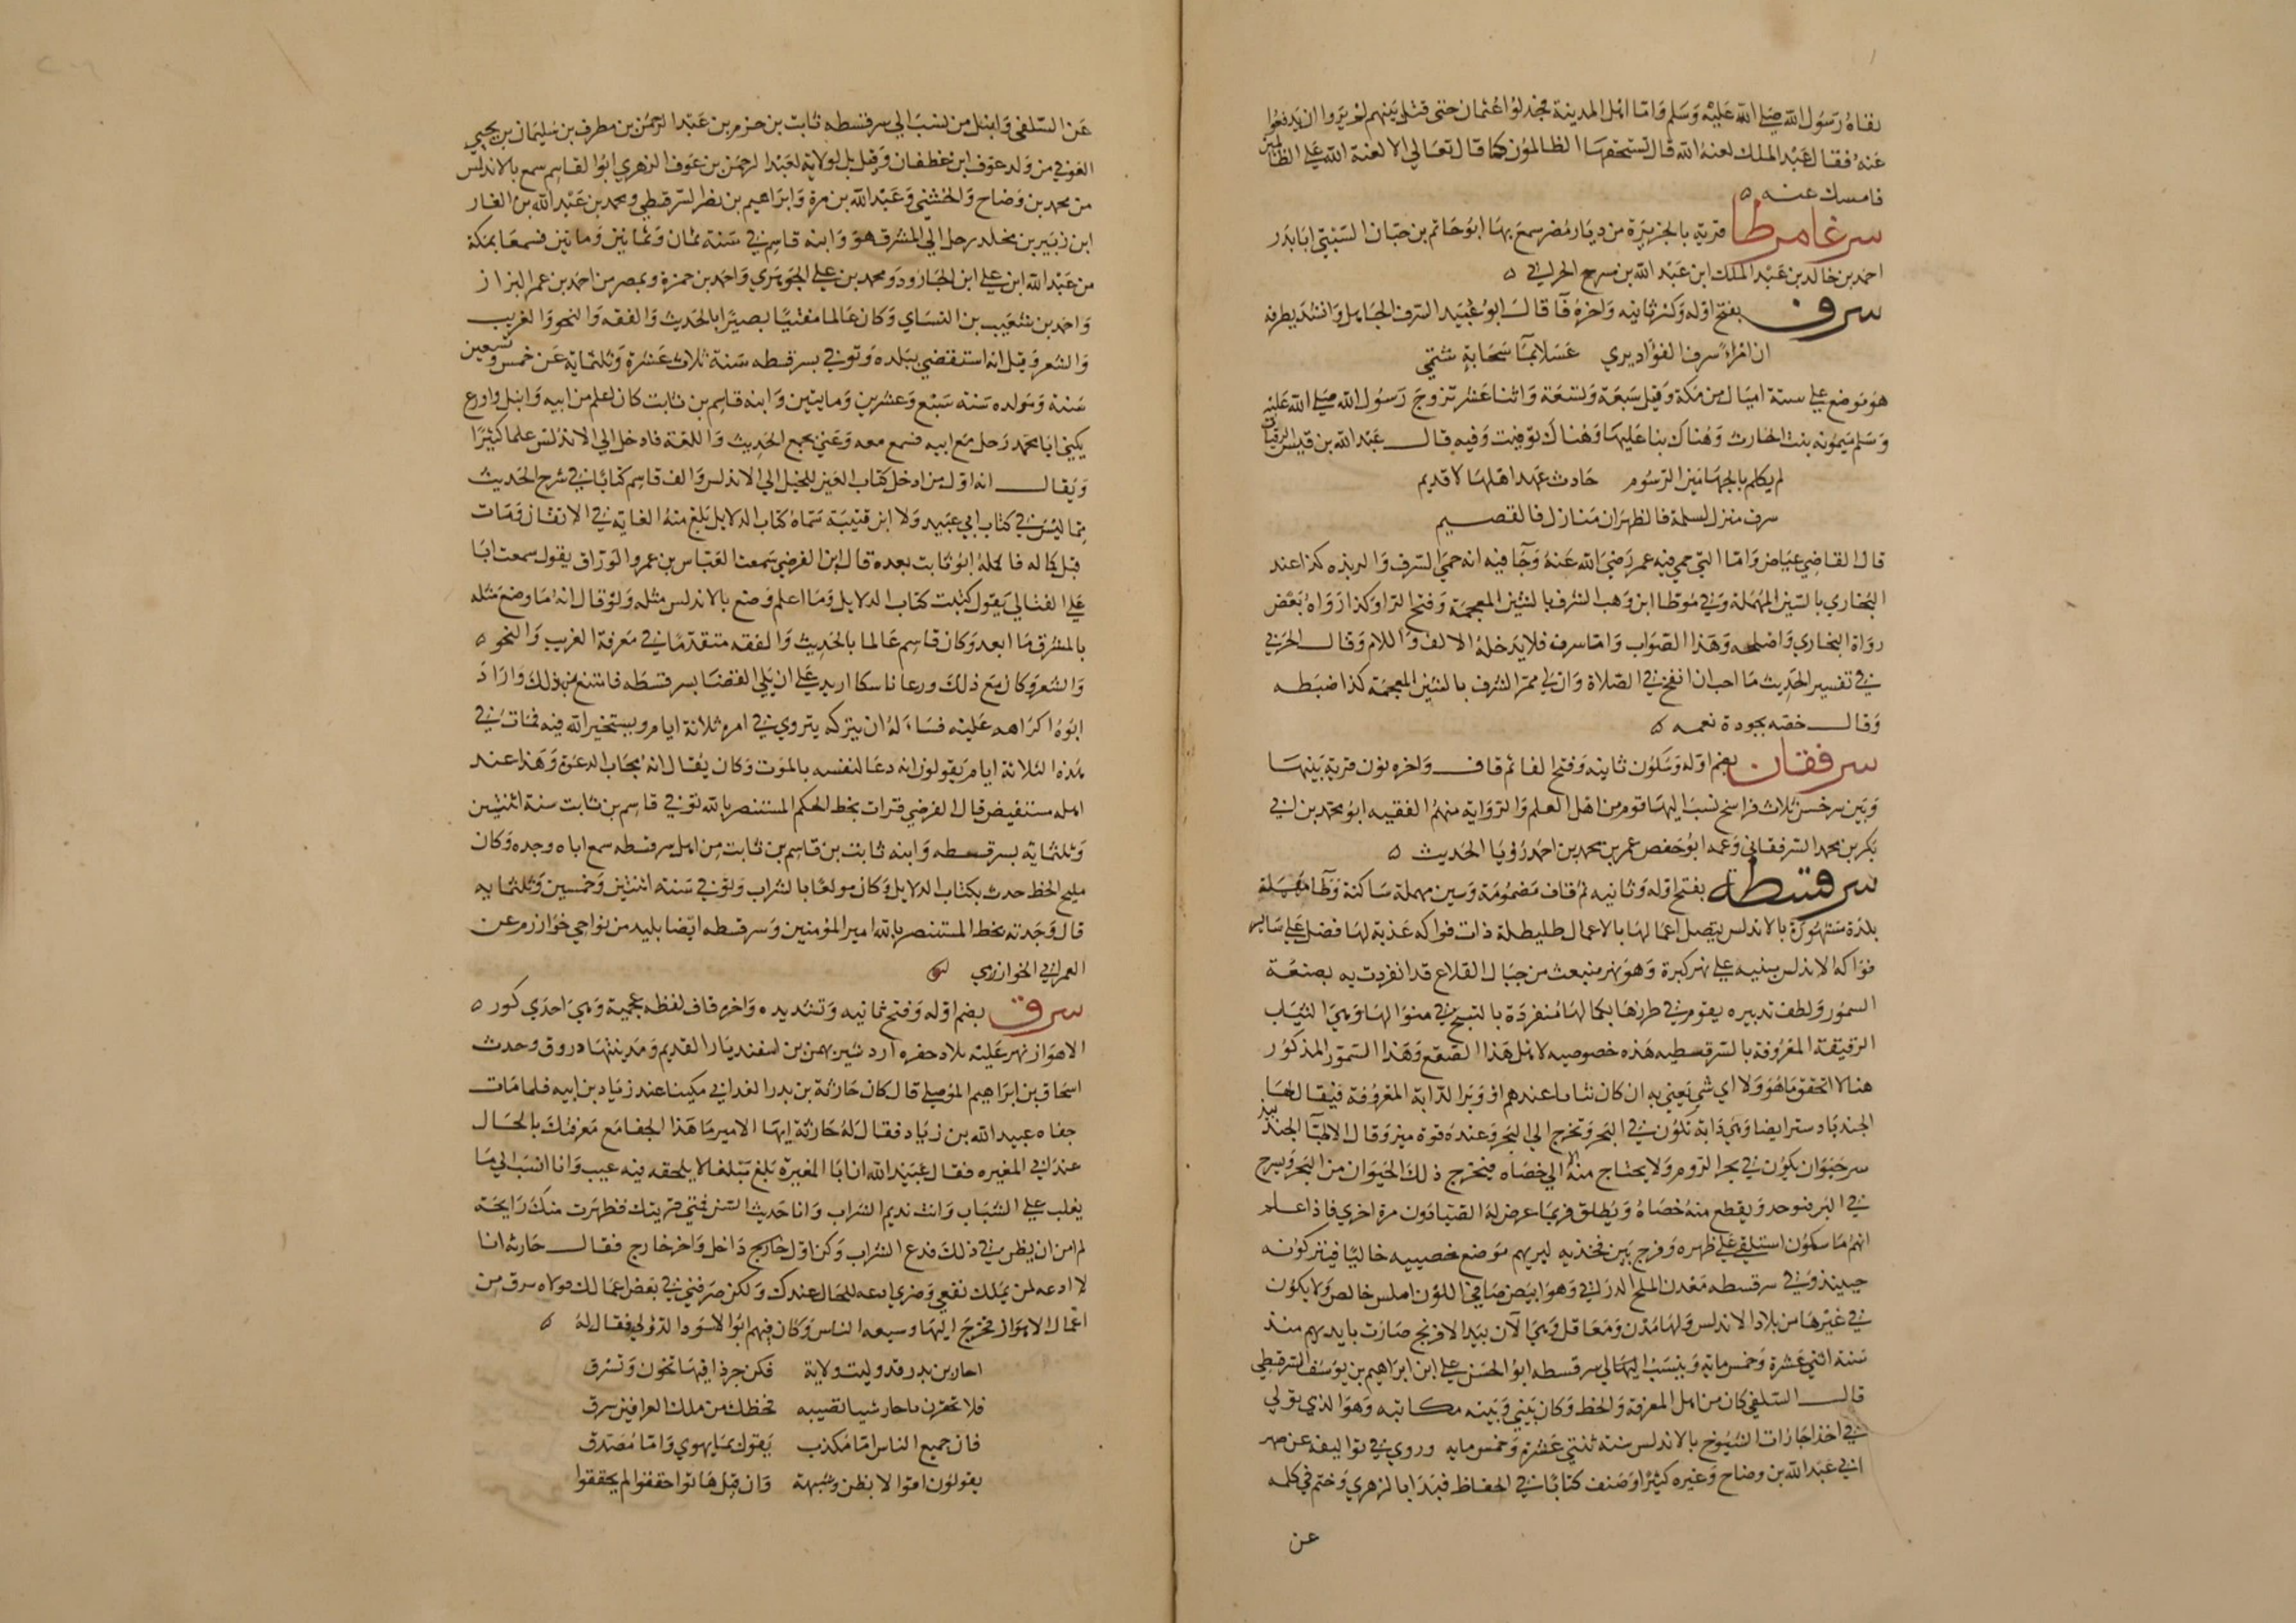 نفاه رسول الله صلى الله عليه وسلم واما اهل المدينة فخذلوا عثمان حتى قتل بينهم لم يروا ان يدفعوا
عنه فقال عبد الملك لعنه الله قال تستحقها الظالمون كما قال تعالى الا لعنة الله على الظالمين
فامسك عنه ه
سرغامرطا قرية بالجزيرة من ديار مضر سمع بها ابو حاتم بن حبان البستي ابا بدر
احمد بن خالد بن عبد الملك ابن عبد الله بن مسرح الحراني ه
سرف بفتح اوله وكسر ثانيه واخره فآ قال ابو عبيد السرف الجاهل وانشد لطرفه
ان امراء سرف الفؤاد يري عسلا بمآ سحابة شتمي
هو موضع على ستة اميال من مكة وقيل سبعة وتسعة واثنا عشر تزوج رسول الله صلى الله عليه
وسلم ميمونه بنت الحارث وهناك بنا عليها وهناك توفيت وفيه قال عبد الله بن قيس الرقيات
لم يكلم بالجهتين الرسوم حادث عهد اهلها لا قديم
سرف منزل لسلمة فالظهران منازل فالقصيم
قال القاضي عياض واما التي حمي فيه عمر رضي الله عنه وجآ فيه انه حمي السرف والربذه كذا عند
البخاري بالسين المهملة وفي موطا ابن وهب الشرف بالشين المعجمة وفتح الرا وكذا رواه بعض
رواة البخاري واصلحه وهذا الصواب واما سرف فلا يدخله الالف واللام وقال الحربي
في تفسير الحديث ما احب ان انفخ في الصلاة وان لي ممر الشرف بالشين المعجمة كذا ضبطه
وقال خصه بجودة نعمه ه
سرفقان بضم اوله وسكون ثانيه وفتح الفا ثم قاف واخره نون قرية بينها
وبين سرخس ثلاث فراسخ نسب اليها قوم من اهل العلم والرواية منهم الفقيه ابو محمد بن ابي
بكر بن محمد السرفقاني وعمه ابو حفص عمر بن محمد بن احمد رويا الحديث ه
سرقسطة بفتح اوله وثانيه ثم قاف مضمومة وسين مهملة ساكنة وطآ مهملة
بلدة مشهورة بالاندلس يتصل اعمالها بالاعمال طليطلة ذات فواكه عذبة لها فضل على ساير
فواكه الاندلس مبنيه على نهر كبيرة وهو نهر منبعث من جبال القلاع قد انفردت به بصنعة
السمور ولطف تدبيره يقوم في طرزها بكمالها منفردة بالنسج في منوالها وهي الثياب
الرقيقة المعروفة بالسرقسطيه هذه خصوصيه لاهل هذا الصقع وهذا السمور المذكور
هنا لا اتحقق ما هو ولا اي شي يعني به ان كان نباتا عندهم او وبر الدابة المعروفة فيقال لها
الجندبادستر ايضا وهي دابة تكون في البحر وتخرج الى البر وعنده قوة ميز وقال الاطبآ الجندبيد
ستر حيوان يكون في بحر الروم ولا يحتاج منه الا الي خصاه فيخرج ذلك الحيوان من البحر ويسرح
في البر فيوخذ ويقطع منه خصاه ويطلق فربما عرض له الصيادون مرة اخري فاذا علم
انهم ماسكوه استلقي على ظهره وفرج بين فخذيه ليريهم موضع خصييه خاليا فيتركونه
حينيذ وفي سرقسطه معدن الملح الدراني وهو ابيض صافي اللون املس خالص ولا يكون
في غيرها من بلاد الاندلس ولها مدن ومعاقل وهي الآن بيد الافرنج صارت بايديهم منذ
سنة اثني عشرة وخمس ماية وينسب اليها الي سرقسطه ابو الحسن علي ابن ابراهيم بن يوسف السرقسطي
قال السلفي كان من اهل المعرفة والخط وكان بيني وبينه مكاتبه وهو الذي تولي
في اخذ اجازات الشيوخ بالاندلس سنة ثنتي عشرة وخمس مايه وروي في تواليفه عن صهر
ابي عبد الله بن وضاح وغيره كثيرا وصنف كتابا في الحفاظ فبدا بالزهري وختم في كله
عن
عن السلفي وانبل من نسب الي سرقسطه ثابت بن حزم بن عبد الرحمن بن مطرف بن سليمان بن يحيي
العوفي من ولد عوف ابن غطفان وقيل بل لولاية لعبد الرحمن بن عوف الزهري ابو القاسم سمع بالاندلس
من محمد بن وضاح والخشني وعبد الله بن مرة وابراهيم بن نصر السرقسطي ومحمد بن عبد الله بن الغار
ابن زبير بن مخلد رحل الي المشرق هو وابنه قاسم في سنة ثمان وثمانين وماتين فسمعا بمكة
من عبد الله ابن علي ابن الجارود ومحمد بن علي الجوهري واحمد بن حمزة وبمصر من احمد بن عمر البزاز
واحمد بن شعيب بن النساي وكان عالما مفتيا بصيرا بالحديث والفقه والنحو والغريب
والشعر وقيل انه استقضي ببلده وتوفي بسرقسطه سنة ثلاث عشرة وثلثماية عن خمس وتسعين
سنة ومولده سنة سبع وعشرين ومايتين وابنه قاسم بن ثابت كان اعلم من ابيه وانبل واورع
يكني ابا محمد رحل مع ابيه فسمع معه وعني بجمع الحديث واللغة فادخل الي الاندلس علما كثيرا
ويقال انه اول من ادخل كتاب العين للخليل الي الاندلس والف قاسم كتابا في شرح الحديث
مما ليس في كتاب ابي عبيد ولا ابن قتيبة سماه كتاب الدلايل بلغ منه الغاية في الاتقان ومات
قبل كماله فاكمله ابوه ثابت بعده قال ابن الفرضي سمعت العباس بن عمرو الوراق يقول سمعت ابا
علي القالي يقول كتبت كتاب الدلايل وما اعلم وضع بالاندلس مثله ولو قال انه ما وضع مثله
بالمشرق ما ابعد وكان قاسم عالما بالحديث والفقه متقدما في معرفة الغريب والنحو ه
والشعر وكان مع ذلك ورعا ناسكا اريد على ان يلي القضا بسرقسطه فامتنع من ذلك واراد
ابوه اكراهه عليه فسأله ان يتركه يتروي في امره ثلاثة ايام ويستخير الله فيه فمات في
هذه الثلاثة ايام يقولون انه دعا لنفسه بالموت وكان يقال انه مجاب الدعوة وهذا عند
اهله مستفيض قال الفرضي قرات بخط الحكم المستنصر بالله توفي قاسم بن ثابت سنة اثنتين
وثلثمايه بسرقسطه وابنه ثابت بن قاسم بن ثابت من اهل سرقسطه سمع اباه وجده وكان
مليح الخط حدث بكتاب الدلايل وكان مولعا بالشراب وتوفي سنة اثنتين وخمسين وثلثمايه
قال وجدته بخط المستنصر بالله امير المؤمنين وسرقسطه ايضا بليد من نواحي خوارزم عن
العمراني الخوارزمي
سرق بضم اوله وفتح ثانيه وتشديده واخره قاف لفظه عجمية وهي احدي كور ه
الاهواز نهر عليه بلاد حفره اردشير بهمن بن اسفنديار القديم ومدينتها دورق وحدث
اسحاق بن ابراهيم الموصلي قال كان حارثة بن بدر الغداني مكينا عند زياد بن ابيه فلما مات
جفاه عبيد الله بن زياد فقال له حارثة ايها الامير ما هذا الجفا مع معرفتك بالحال
عند ابي المغيره فقال عبيد الله ان ابا المغيرة بلغ مبلغا لا يلحقه فيه عيب وانا انسب الي ما
يغلب علي الشباب وانت نديم الشراب وانا حديث السن فمتي قربتك فظهرت منك رايحة
لم امن ان يظن بي ذلك فدع الشراب وكن اول خارج داخل واخر خارج فقال حارثه انا
لا ادعه لمن يملك نفعي وضري ادعه للحال عندك ولكن صرفني في بعض اعمالك فولاه سرق من
اعمال الاهواز فخرج اليها وشيعه الناس وكان فيهم ابو الاسود الدؤلي فقال له ه
احار بن بدر قد وليت ولاية فكن جرذا فيها تخون وتسرق
فلا تحقرن يا حار شيا تصيبه فحظك من ملك العراقين سرق
فان جميع الناس اما مكذب يقول بما يهوي واما مصدق
يقولون اقوالا بظن وشبهة وان قيل هاتوا حققوا لم يحققوا